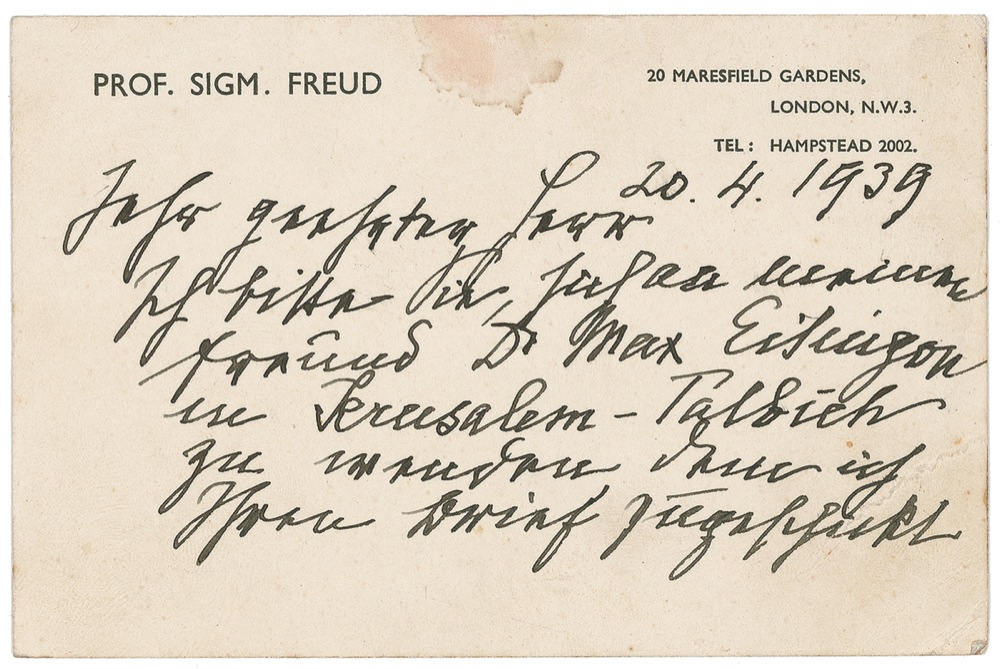 PROF. SIGM. FREUD
20 MARESFIELD GARDENS,
LONDON, N.W.3.
TEL: HAMPSTEAD 2002.
20. 4. 1939
Sehr geehrter Herr
Ich bitte Sie, sich an meinen
Freund Dr Max Eitingon
in Jerusalem – Talbieh
zu wenden dem ich
Ihren Brief zugeschickt